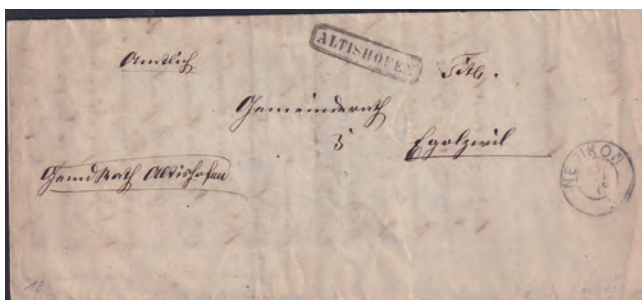 ALTISHOFEN
Amtlich Titl.
Gemeinderath
Egolzwil
GemdRath Altishofen
NEBIKON
13